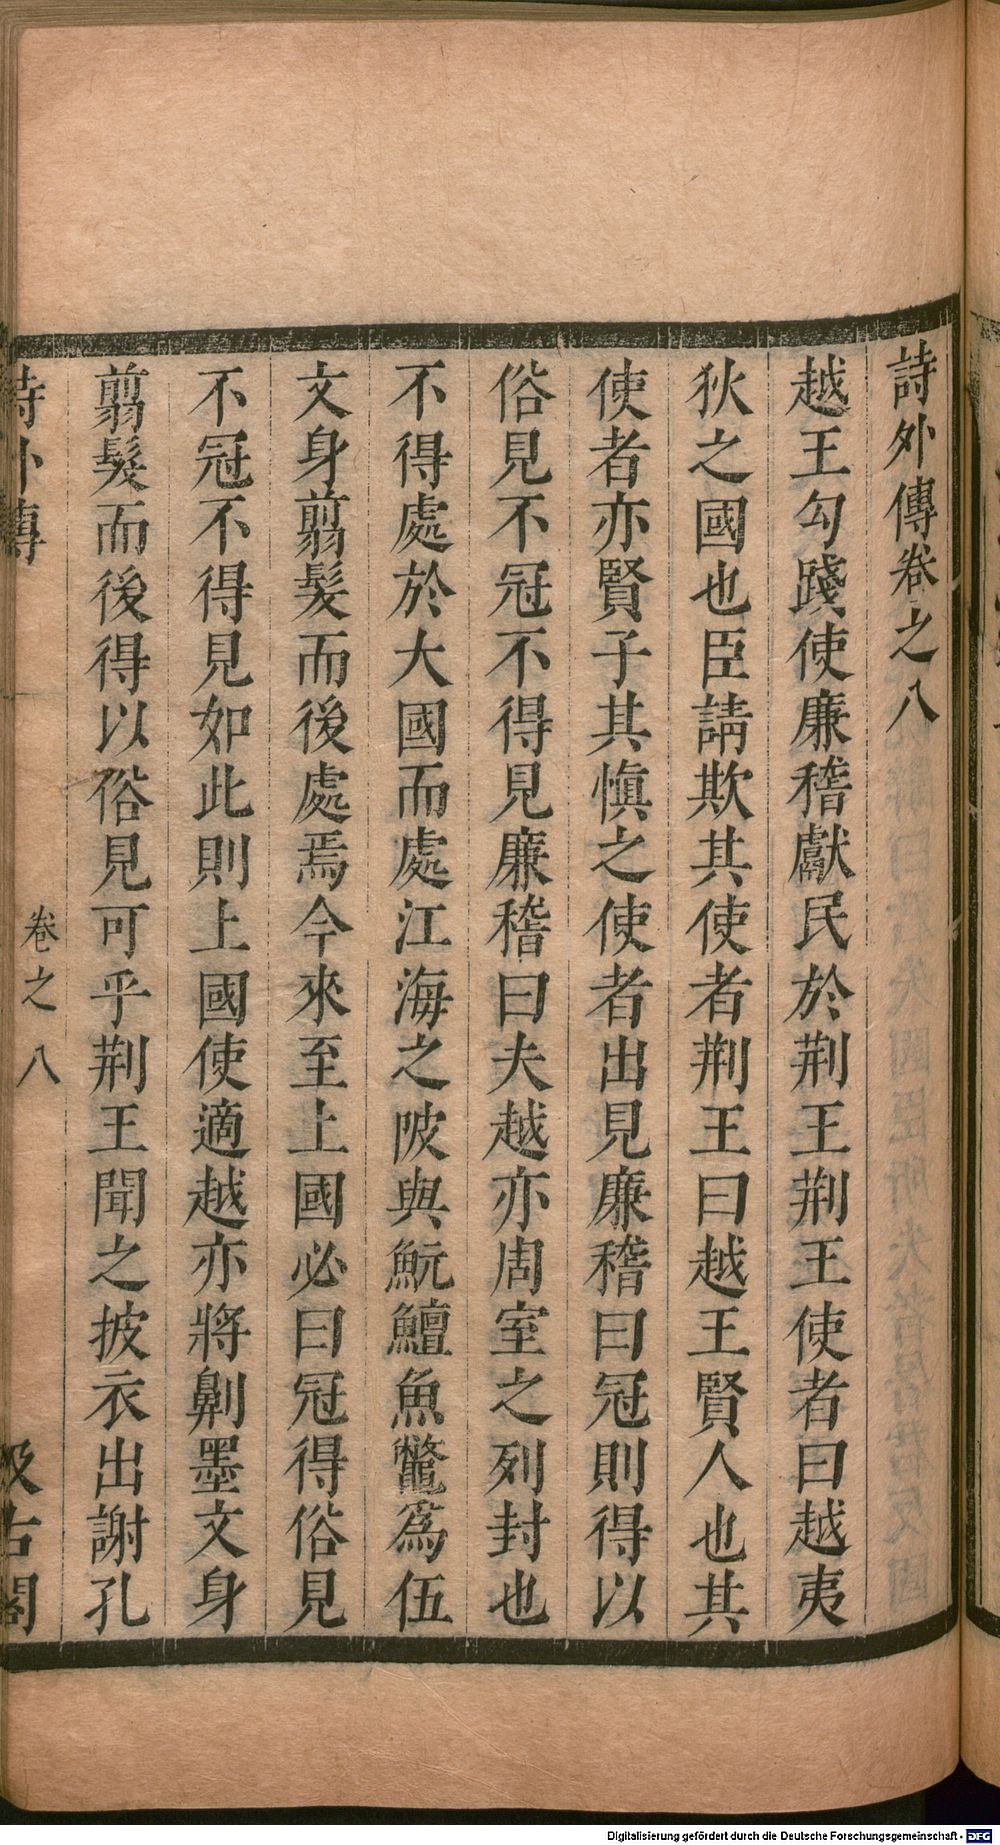 詩外傳卷之八
越王勾踐使廉稽獻民於荆王荆王使者曰越夷
狄之國也臣請欺其使者荆王曰越王賢人也其
使者亦賢子其愼之使者出見廉稽曰冠則得以
俗見不冠不得見廉稽曰夫越亦周室之列封也
不得處於大國而處江海之陂與魭鱣魚鼈爲伍
文身翦髮而後處焉今來至上國必曰冠得俗見
不冠不得見如此則上國使適越亦將劓墨文身
翦髮而後得以俗見可乎荆王聞之披衣出謝孔
詩外傳 卷之八 汲古閣
Digitalisierung gefördert durch die Deutsche Forschungsgemeinschaft - DFG